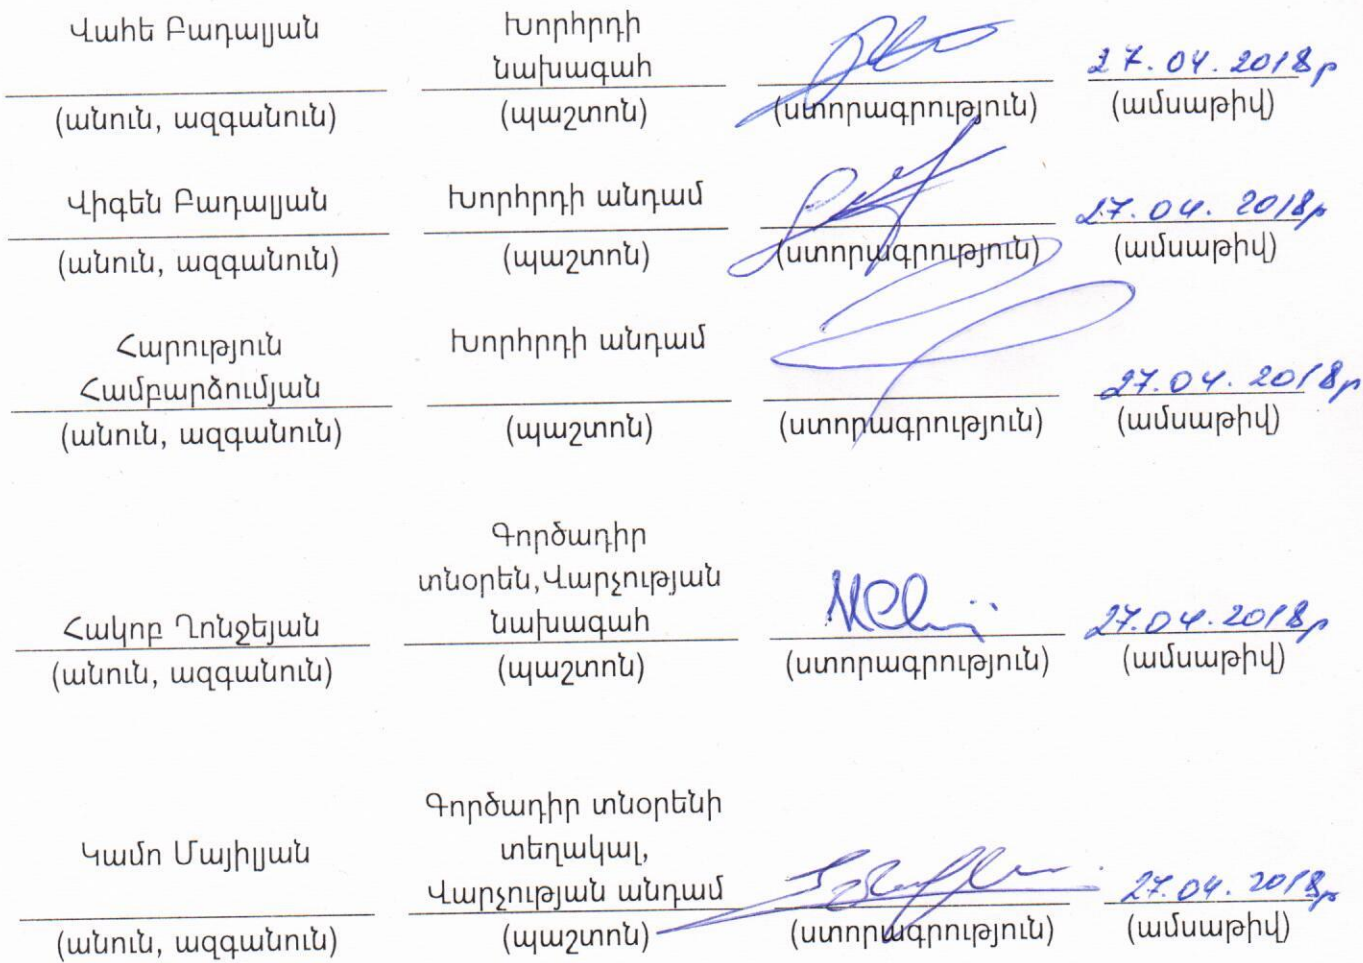 Վահե Բադալյան Խորհրդի
նախագահ 27.04.2018թ
(անուն, ազգանուն) (պաշտոն) (ստորագրություն) (ամսաթիվ)
Վիգեն Բադալյան Խորհրդի անդամ 27.04.2018թ
(անուն, ազգանուն) (պաշտոն) (ստորագրություն) (ամսաթիվ)
Հարություն Խորհրդի անդամ
Համբարձումյան 27.04.2018թ
(անուն, ազգանուն) (պաշտոն) (ստորագրություն) (ամսաթիվ)
Գործադիր
տնօրեն,Վարչության
Հակոբ Ղոնջեյան նախագահ 27.04.2018թ
(անուն, ազգանուն) (պաշտոն) (ստորագրություն) (ամսաթիվ)
Գործադիր տնօրենի
Կամո Մայիլյան տեղակալ,
Վարչության անդամ 27.04.2018թ
(անուն, ազգանուն) (պաշտոն) (ստորագրություն) (ամսաթիվ)